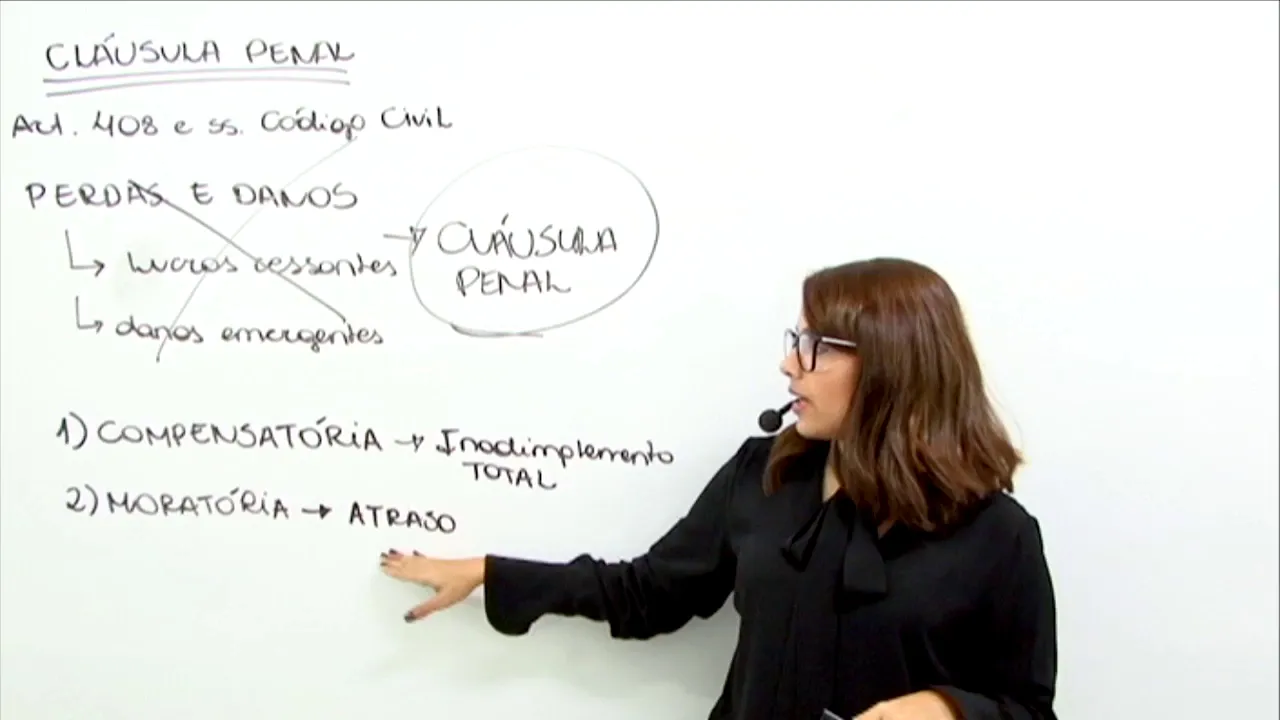 CLÁUSULA PENAL
Art. 408 e ss. Código Civil
PERDAS E DANOS
↳ lucros cessantes
↳ danos emergentes
→ CLÁUSULA
PENAL
1) COMPENSATÓRIA → Inadimplemento
TOTAL
2) MORATÓRIA → ATRASO